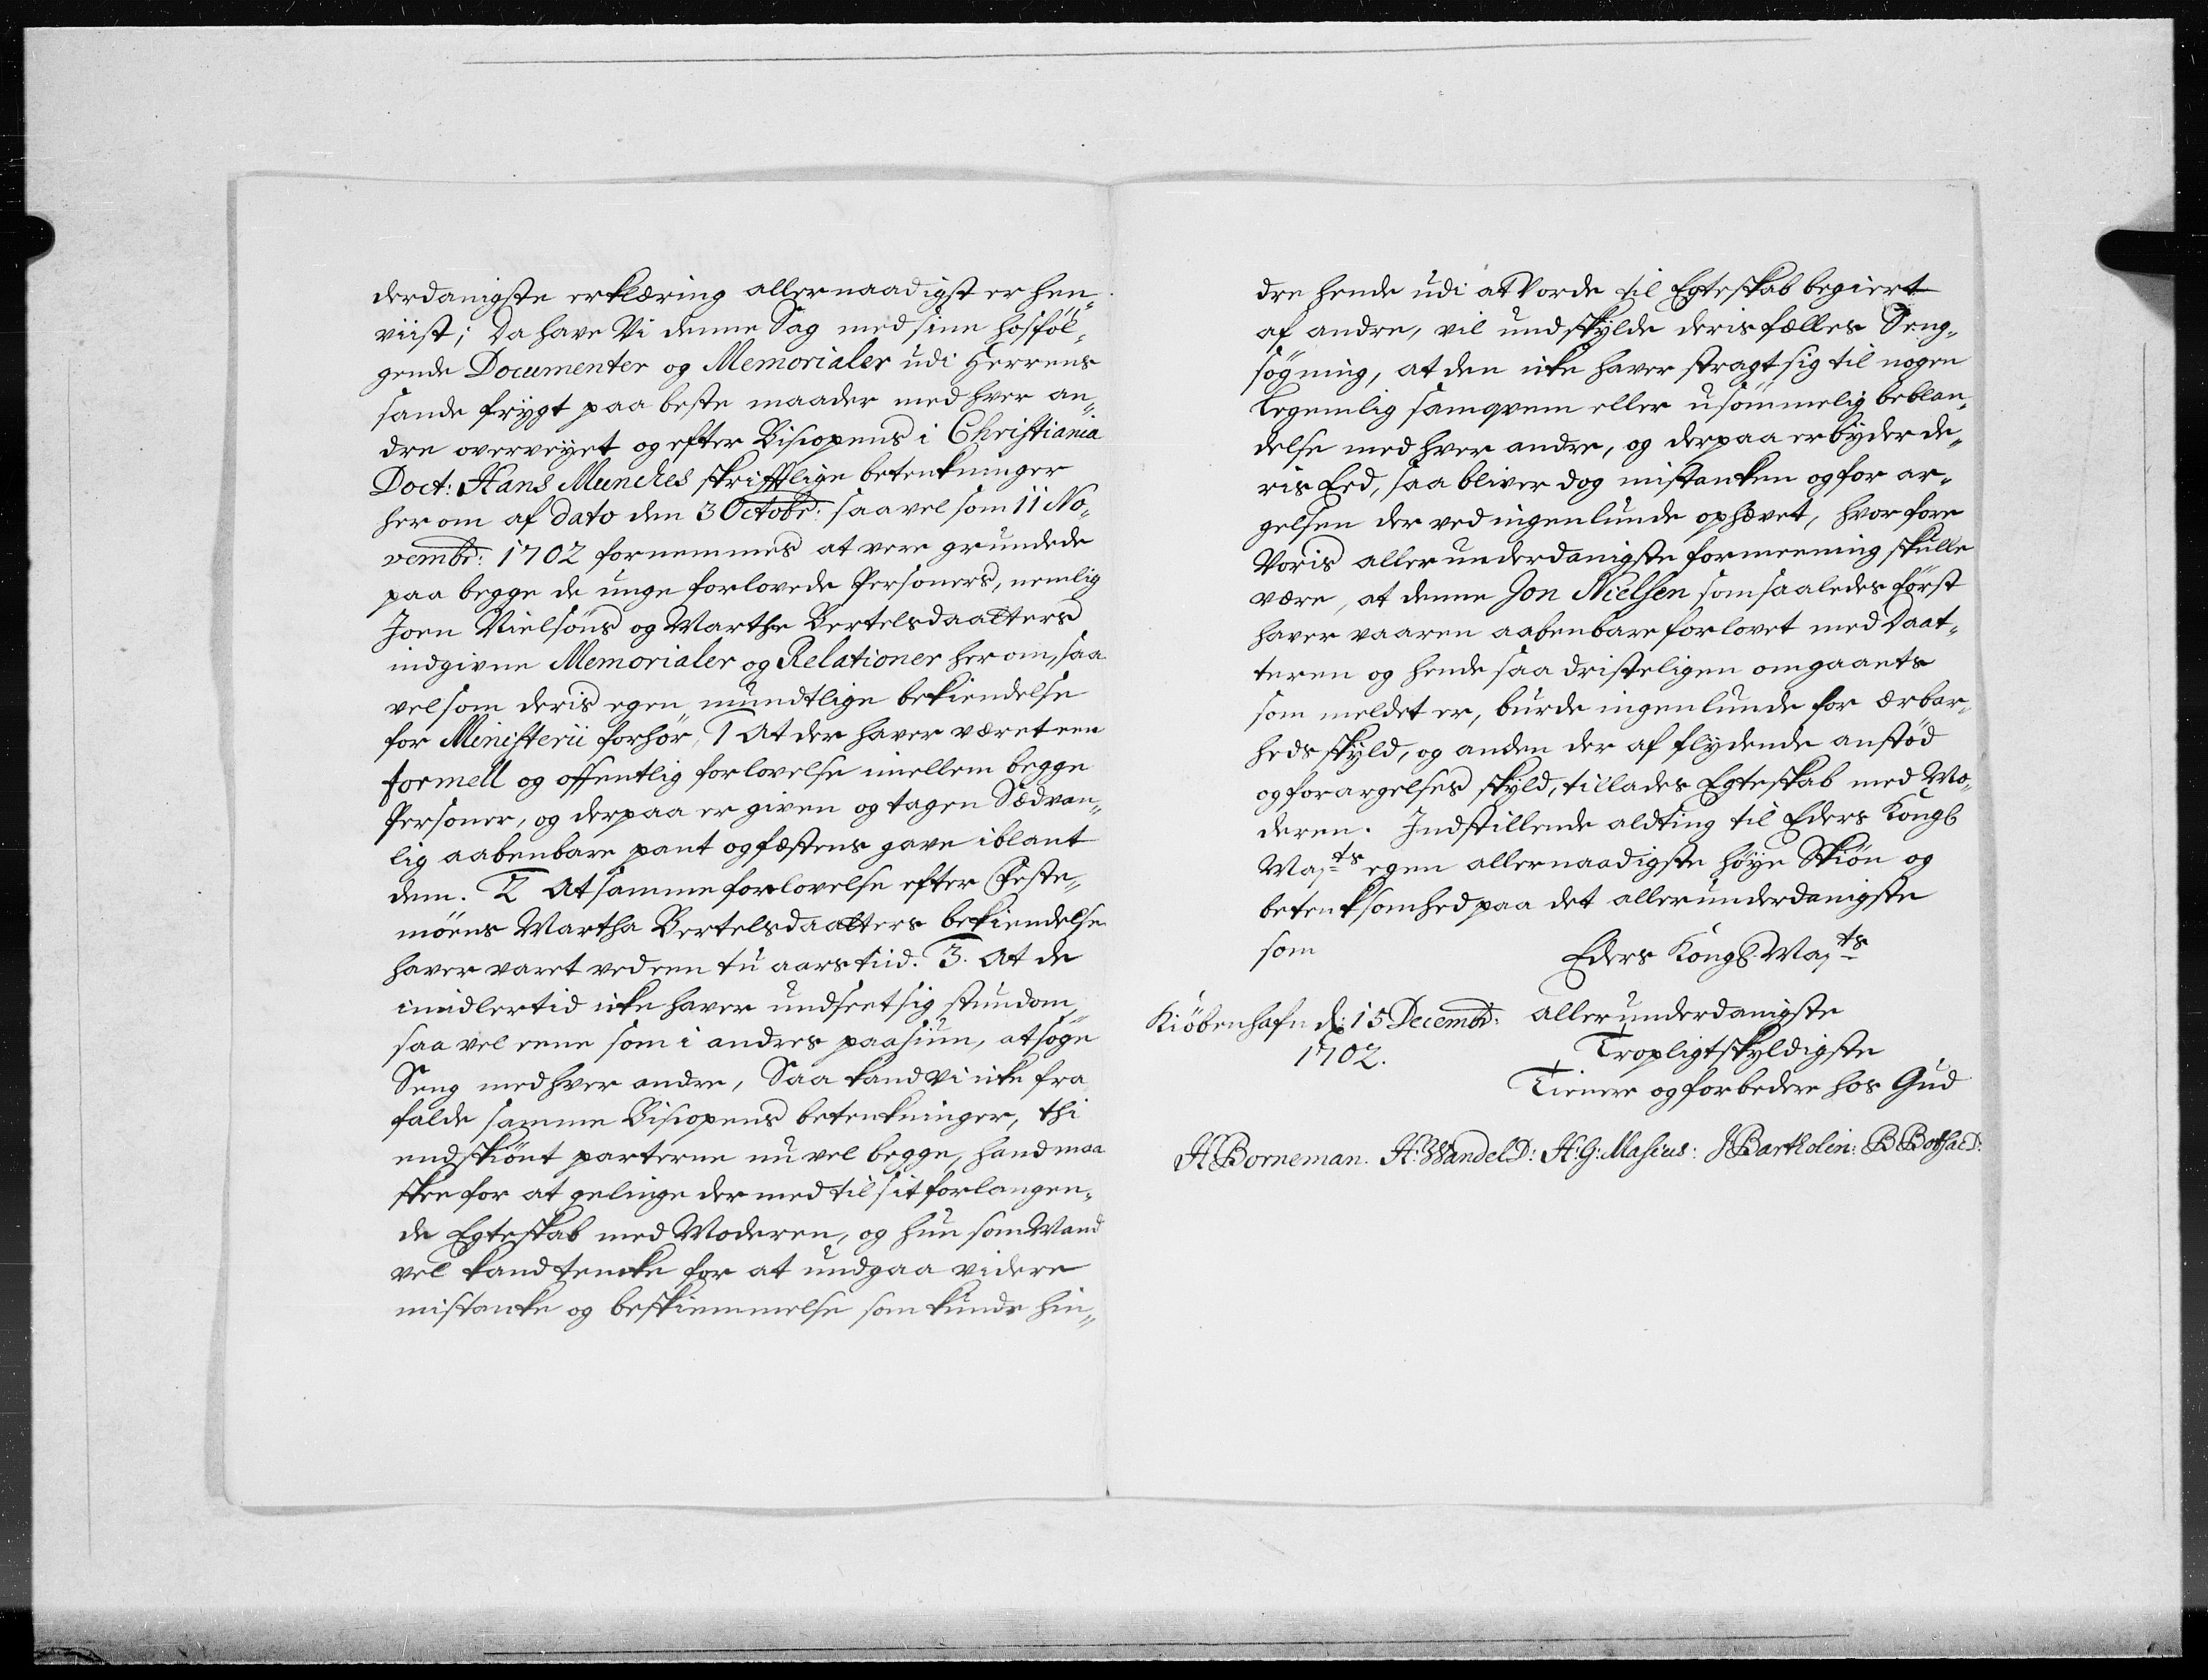 derdanigste erklæring allernaadigst er hen„
viist; da have Vi denne Sag med sine hosföl„
gende Documenter og Memorialer udi Herrens
sande frygt paa beste maader med hver an„
dre overveyet og efter Biscopens i Christiania
Doct: Hans Munckes skrifftlige betenkninger
her om af dato den 3 Octobr: saavel som 11 No„
vembr: 1702 fornemmes at vere grundede
paa begge de unge forlovede Personers, nemlig
Joen Nielsöns og Marthe Bertelsdaatters
indgivne Memorialer og Relationer her om, saa
vel som deris egen mundtlige bekiendelse
for Ministerii forhör, 1 At der haver været een
formell og offentlig forlovelse imellem begge
Personer, og derpaa er given og tagen Sædvan„
lig aabenbare pant og fæstens gave iblant
dem. 2 At samme forlovelse efter Feste„
möens Martha Bertelsdaatters bekiendelse
haver varet ved een tu aars tiid. 3. At de
imidlertid icke haver undseet sig stundom,
saa vel eene som i andres paasiun, at söge
Seng med hver andre, Saa kand Vi icke fra
falde samme Biscopens betenkninger, thi
endskiönt parterne nu vel begge, hand maa
skee for at gelinge der med til sit forlangen„
de Egteskab med Moderen, og hun som Mand
vel kand tencke for at undgaa videre
mistanke og beskiemmelse som kunde hin„
dre hende udi at Vorde til Egteskab begiert
af andre, vil undskylde deris fælles Seng„
søgning, at den icke haver stragt sig til nogen
Legemlig samqvem eller usömmelig beblan„
delse med hver andre, og derpaa erbyder de„
ris Eed, saa bliver dog mistanken og for ar„
gelsen der ved ingenlunde ophævet, hvorfore
Voris allerunderdanigste formeening skulle
være, at denne Jon Nielsen som saaledes först
haver vaaren aabenbare forlovet med Daat„
teren og hende saa dristeligen omgaaets
som meldet er, burde ingenlunde for ærbar„
heds skyld, og anden der af flydende anstöd
og forargelses skyld, tillades Egteskab med Mo„
deren. Indstillende alting til Eders Kongl
Mayts egen allernaadigste höye Skiön og
betenksomhed paa det allerunderdanigste
som
Eders Kongl. Mayts
Kiöbenhafn d: 15 Decembr: allerunderdanigste
1702. Tropligtskyldigste
Tienere og forbedere hos Gud
H Borneman. H: Wandel D: H: G: Masius: J Bartholin: B Botsac D: